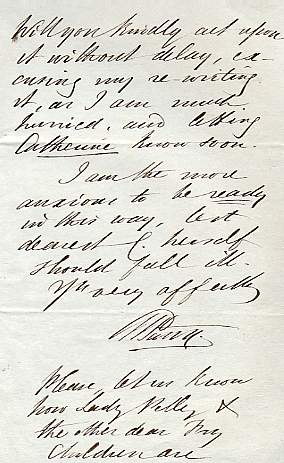 Will you kindly act upon
it without delay, ex-
cusing my re-writing
it, as I am much
hurried, and letting
Catherine know soon.
I am the more
anxious to be ready
in this way, lest
dearest C. herself
should fall ill
Yrs very affectly
Please, let us know
how Lady &
the other dear Fry
Children are